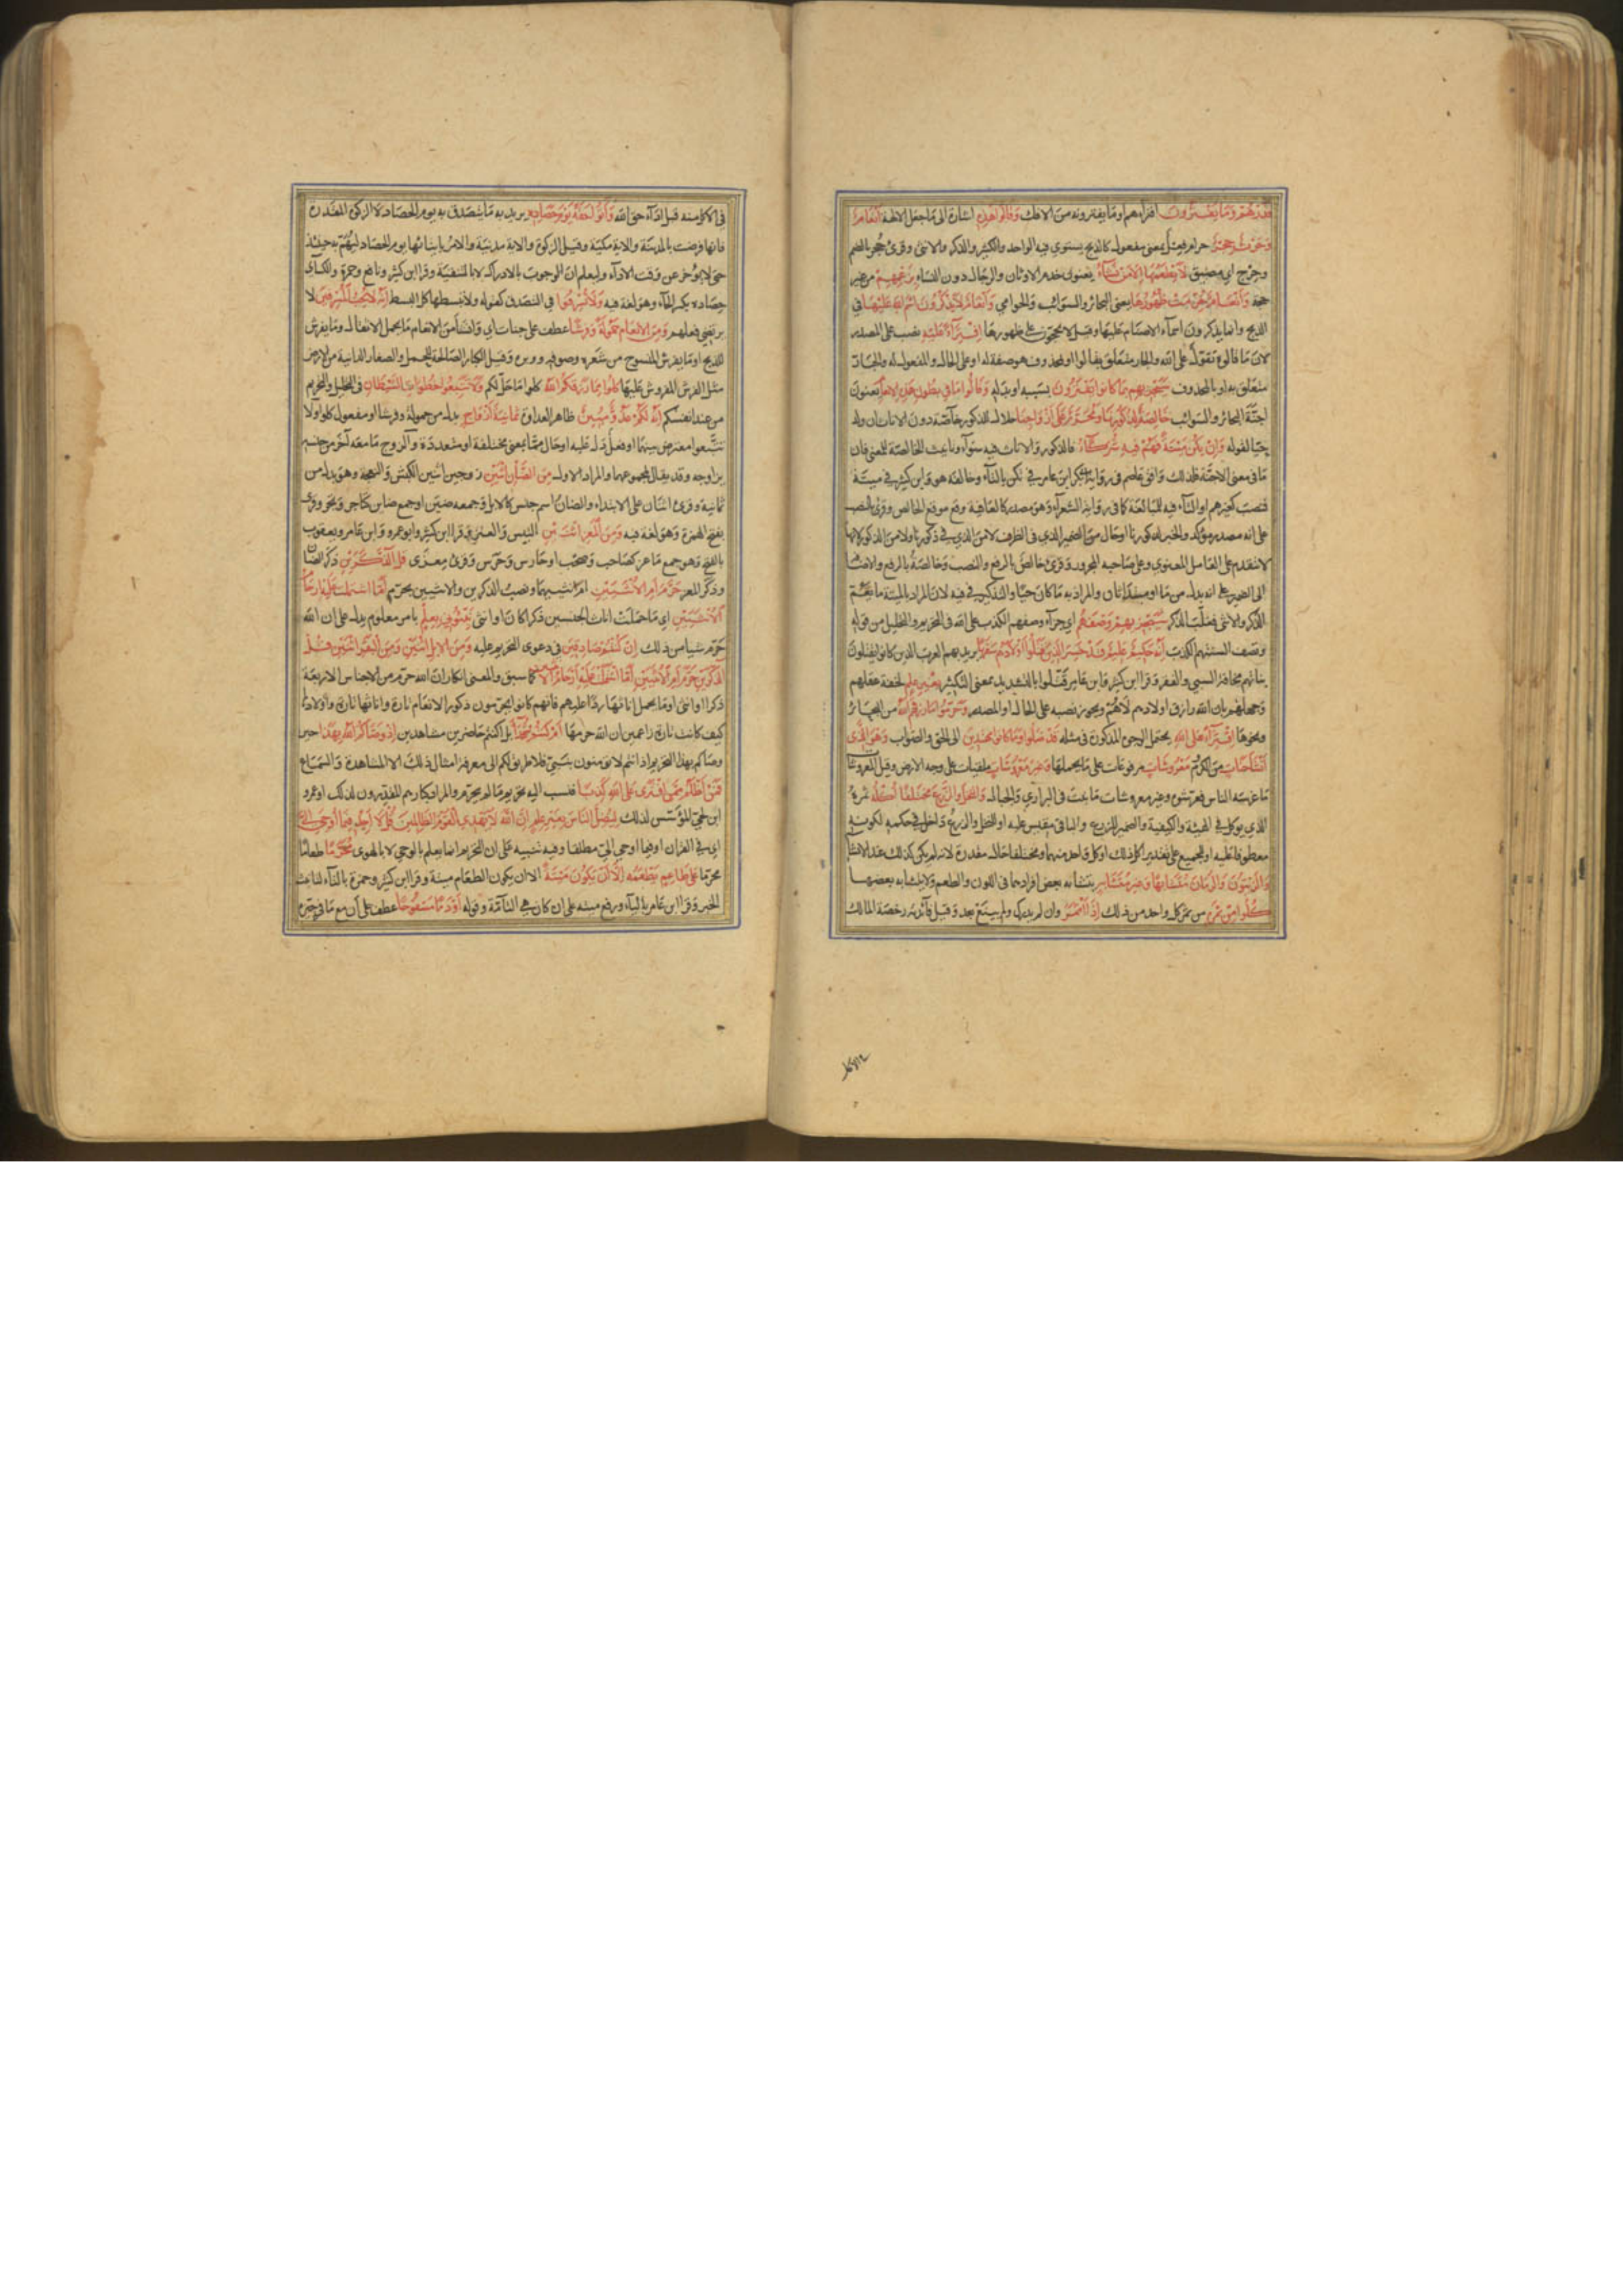 فذرهم وما يفترون افتراءهم او ما يفترونه من الافك وقالوا هذه اشارة الى ما جعل لالهتهم انعام
وحرث حجر حرام فعل بمعنى مفعول كالذبح يستوي فيه الواحد والكثير والذكر والانثى وقرئ حجر بالضم
وحرج اي مضيق لا يطعمها الا من نشاء يعنون خدم الاوثان والرجال دون النساء بزعمهم من غير
حجة وانعام حرمت ظهورها يعني البحائر والسوائب والحوامي وانعام لا يذكرون اسم الله عليها في
الذبح وانما يذكرون اسماء الاصنام عليها وقيل لا يحجون على ظهورها افتراء عليه نصب على المصدر
لان ما قالوه تقول على الله والجار متعلق بقالوا او بمحذوف هو صفة له او على الحال والمفعول له والجار
متعلق به او بالمحذوف سيجزيهم بما كانوا يفترون بسببه او بدله وقالوا ما في بطون هذه الانعام يعنون
اجنة البحائر والسوائب خالصة لذكورنا ومحرم على ازواجنا حلال للذكور خاصة دون الاناث ان ولد
حيا لقوله وان يكن ميتة فهم فيه شركاء فالذكور والاناث فيه سواء وتانيث الخالصة للمعنى فان
ما في معنى الاجنة ولذلك وافق عاصم في رواية ابي بكر ابن عامر في تكن بالتاء وخالفه هو وابن كثير في ميتة
فنصب كغيرهم او التاء فيه للمبالغة كما في رواية الشعر او هو مصدر كالعافية وقع موقع الخالص وقرئ بالنصب
على انه مصدر مؤكد والخبر لذكورنا او حال من الضمير الذي في الظرف لا من الذي في ذكورنا ولا من الذكور لانها
لا تتقدم على العامل المعنوي وعلى صاحبه المجرور وقرئ خالص بالرفع والنصب وخالصه بالرفع والاضافة
الى الضمير على انه بدل من ما او مبتدأ ثان والمراد به ما كان حيا والتذكير في فيه لان المراد بالميتة ما يعم
الذكر والانثى فغلب الذكر سيجزيهم وصفهم اي جزاء وصفهم الكذب على الله في التحريم والتحليل من قوله
وتصف السنتهم الكذب انه حكيم عليم قد خسر الذين قتلوا اولادهم سفها يريد بهم العرب الذين كانوا يقتلون
بناتهم مخافة السبي والفقر وقرا ابن كثير وابن عامر قتلوا بالتشديد بمعنى التكثير بغير علم لخفة عقلهم
وجهلهم بان الله رازق اولادهم لا هم ويجوز نصبه على الحال او المصدر وحرموا ما رزقهم الله من البحائر
ونحوها افتراء على الله يحتمل الوجوه المذكورة في مثله قد ضلوا وما كانوا مهتدين الى الحق والصواب وهو الذي
انشا جنات من الكروم معروشات مرفوعات على ما يحملها وغير معروشات ملقيات على وجه الارض وقيل المعروشات
ما غرسه الناس فعرشوه وغير معروشات ما نبت في البراري والجبال والنخل والزرع مختلفا اكله ثمره
الذي يوكل في الهيئة والكيفية والضمير للزرع والباقي مقيس عليه او للنخل والزرع داخل في حكمه لكونه
معطوفا عليه او للجميع على تقدير اكل ذلك او كل واحد منهما ومختلفا حال مقدرة لانه لم يكن كذلك عند الانشاء
والزيتون والرمان متشابها وغير متشابه يتشابه بعض افرادهما في اللون والطعم ولا يتشابه بعضها
كلوا من ثمره من ثمر كل واحد من ذلك اذا اثمر وان لم يدرك ولم يينع بعد وقيل فائدته رخصة المالك
في الاكل منه قبل اداء حق الله واتوا حقه يوم حصاده يريد به ما يتصدق به يوم الحصاد لا الزكوة المقدرة
فانها فرضت بالمدينة والاية مكية وقيل الزكوة والاية مدنية والامر بايتائها يوم الحصاد ليهتم به حينئذ
حتى لا يؤخر عن وقت الاداء وليعلم ان الوجوب بالادراك لا بالتنقية وقرا ابن كثير ونافع وحمزة والكسائي
حصاده بكسر الحاء وهو لغة فيه ولا تسرفوا في التصدق كقوله ولا تبسطها كل البسط انه لا يحب المسرفين لا
يرتضي فعلهم ومن الانعام حمولة وفرشا عطف على جنات اي وانشأ من الانعام ما يحمل الاثقال وما يفرش
للذبح او ما يفرش المنسوج من شعره وصوفه ووبره وقيل الكبار الصالحة للحمل والصغار الدانية من الارض
مثل الفرش المفروش عليها كلوا مما رزقكم الله كلوا ما حل لكم ولا تتبعوا خطوات الشيطان في التحليل والتحريم
من عند انفسكم انه لكم عدو مبين ظاهر العداوة ثمانية ازواج بدل من حمولة وفرشا او مفعول كلوا ولا
تتبعوا معترض بينهما او فعل دل عليه او حال من ما بمعنى مختلفة او متعددة والزوج ما معه آخر من جنسه
يزاوجه وقد يقال لمجموعهما والمراد الاول من الضأن اثنين زوجين اثنين الكبش والنعجة وهو بدل من
ثمانية وقرئ اثنان على الابتداء والضأن اسم جنس كالابل وجمعه ضئين او جمع ضاين كتاجر وتجر وقرئ
بفتح الهمزة وهو لغة فيه ومن المعز اثنين التيس والعنز وقرا ابن كثير وابو عمرو وابن عامر ويعقوب
بالفتح وهو جمع ماعز كصاحب وصحب او حارس وحرس وقرئ معزى قل الذكرين ذكر الضأن
وذكر المعز حرم ام الانثيين ام انثييهما ونصب الذكرين والانثيين بحرم اما اشتملت عليه ارحام
الانثيين اي ما حملت اناث الجنسين ذكرا كان او انثى نبئوني بعلم بامر معلوم يدل على ان الله
حرم شيا من ذلك ان كنتم صادقين في دعوى التحريم عليه ومن الابل اثنين ومن البقر اثنين قل
الذكرين حرم ام الانثيين اما اشتملت عليه ارحام الانثيين كما سبق والمعنى انكار ان الله حرم من الاجناس الاربعة
ذكرا او انثى او ما يحمل اناثها ردا عليهم فانهم كانوا يحرمون ذكور الانعام تارة واناثها تارة واولادها
كيف كانت تارة زاعمين ان الله حرمها ام كنتم شهداء بل اكنتم حاضرين مشاهدين اذ وصاكم الله بهذا حين
وصاكم بهذا التحريم اذ انتم لا تؤمنون بنبي فلا طريق لكم الى معرفة امثال ذلك الا المشاهدة والسماع
فمن اظلم ممن افترى على الله كذبا فنسب اليه تحريم ما لم يحرم والمراد كبارهم المقررون لذلك او عمرو
ابن لحي المؤسس لذلك ليضل الناس بغير علم ان الله لا يهدي القوم الظالمين قل لا اجد فيما اوحي الي
اي في القران او فيما اوحي الي مطلقا وفيه تنبيه على ان التحريم انما يعلم بالوحي لا بالهوى محرما طعاما
محرما على طاعم يطعمه الا ان يكون ميتة الا ان يكون الطعام ميتة وقرا ابن كثير وحمزة بالتاء لتانيث
الخبر وقرا ابن عامر بالياء ورفع ميتة على ان كان هي التامة وقوله او دما مسفوحا عطف على ان مع ما في حيزه